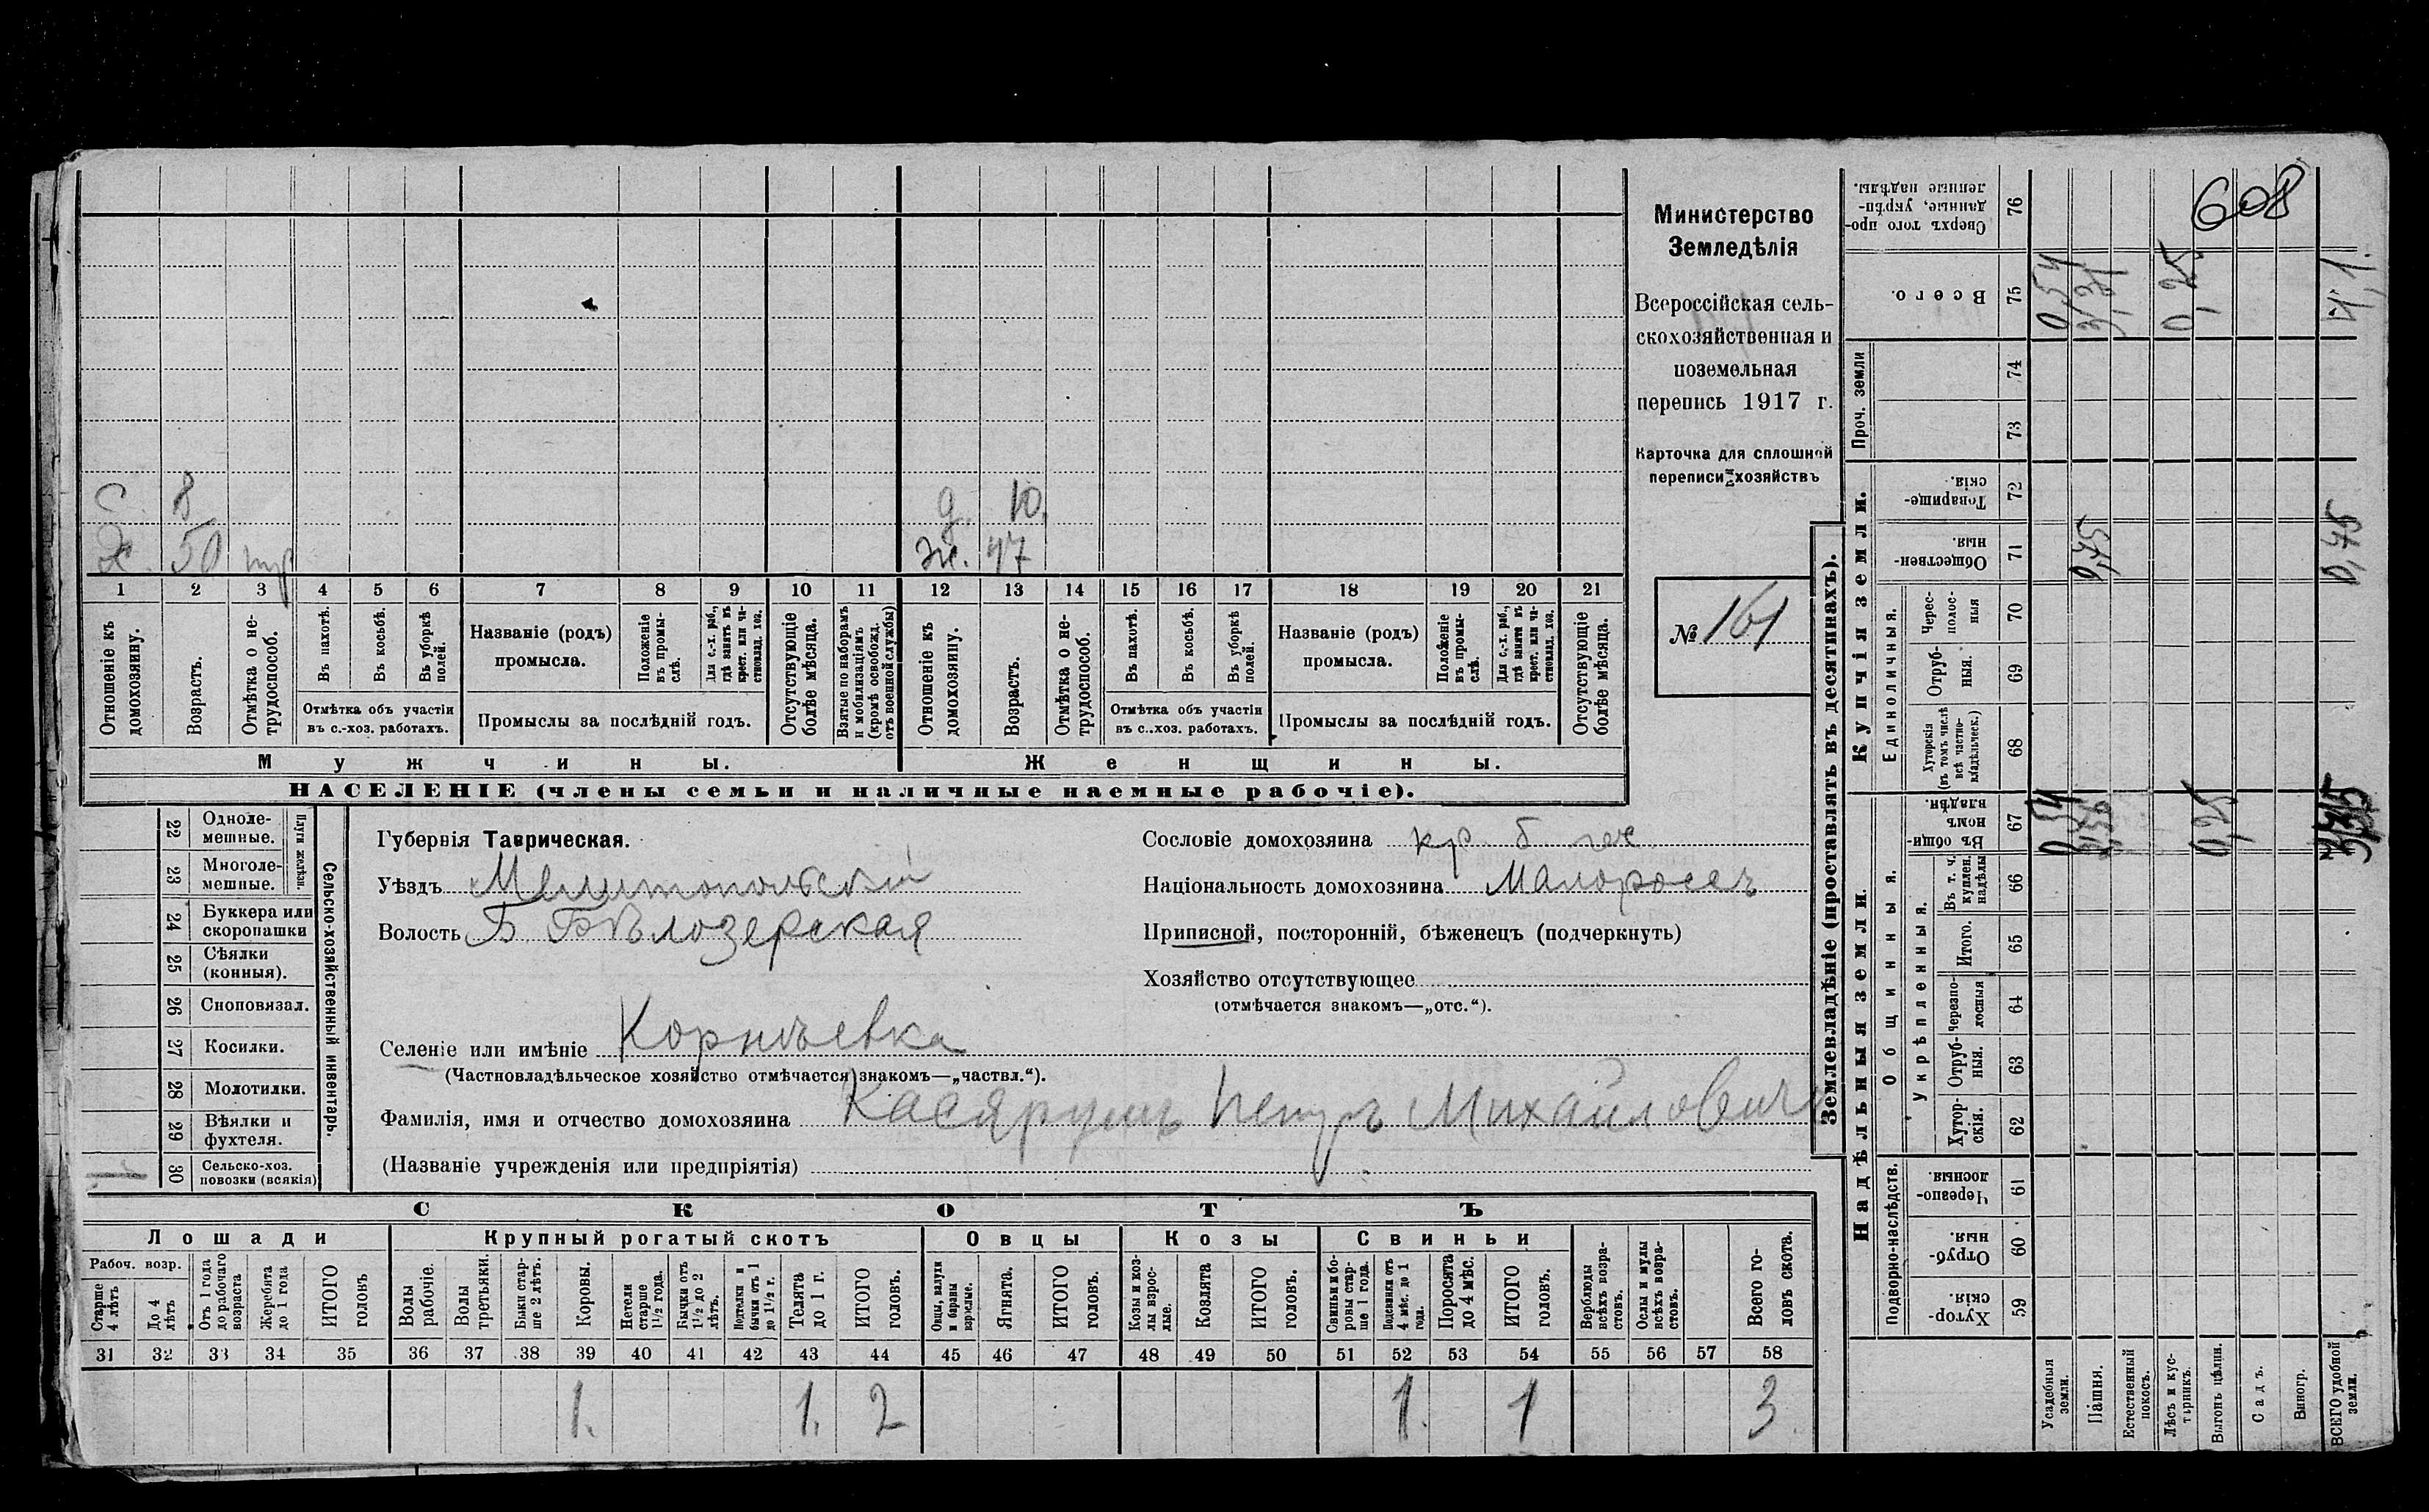 608
Министерство
Земледѣлія
Всероссійская сель-
скохозяйственная и
поземельная
перепись 1917 г.
Карточка для сплошной
переписи хозяйствъ
№ 161
С. 8
Х. 50
д. 10.
ж. 47
1 2 3 4 5 6 7 8 9 10 11 12 13 14 15 16 17 18 19 20 21
Отношеніе къ домохозяину.
Возрастъ.
Отмѣтка о не-трудоспособ.
Въ пахотѣ.
Въ косьбѣ.
Въ уборкѣ полей.
Отмѣтка объ участіи
въ с.-хоз. работахъ.
Названіе (родъ)
промысла.
Положеніе въ промы-слѣ.
Для с.-х. раб., гдѣ занятъ въ крест. или ча-стновлад. хоз.
Промыслы за послѣдній годъ.
Отсутствующіе болѣе мѣсяца.
Взятые по наборамъ и мобилизаціямъ (кромѣ освобожд. отъ военной службы)
Отношеніе къ домохозяину.
Возрастъ.
Отмѣтка о не-трудоспособ.
Въ пахотѣ.
Въ косьбѣ.
Въ уборкѣ полей.
Отмѣтка объ участіи
въ с..хоз. работахъ.
Названіе (родъ)
промысла.
Положеніе въ промы-слѣ.
Для с.-х. раб., гдѣ занята въ крест. или ча-стновлад. хоз.
Промыслы за послѣдній годъ.
Отсутствующіе болѣе мѣсяца.
Мужчины. Женщины.
НАСЕЛЕНІЕ (члены семьи и наличные наемные рабочіе).
22 Одноле-мешные.
23 Многоле-мешные.
Плуги желѣзн.
24 Буккера или скоропашки
25 Сѣялки (конныя).
26 Сноповязал.
27 Косилки.
28 Молотилки.
29 Вѣялки и фухтеля.
30 Сельско-хоз. повозки (всякія)
Сельско-хозяйственный инвентарь.
Губернія Таврическая.
Уѣздъ Мелитопольскій
Волость Б. Бѣлозерская
Селеніе или имѣніе Корнѣевка
(Частновладѣльческое хозяйство отмѣчается знакомъ—„частвл.“).
Фамилія, имя и отчество домохозяина Касярумъ Петръ Михайловичъ
(Названіе учрежденія или предпріятія)
Сословіе домохозяина кр.
Національность домохозяина Малороссъ
Приписной, посторонній, бѣженецъ (подчеркнуть)
Хозяйство отсутствующее
(отмѣчается знакомъ—„отс.“).
СКОТЪ
Лошади Крупный рогатый скотъ Овцы Козы Свиньи
Рабоч. возр.
Старше 4 лѣтъ
До 4 лѣтъ
Отъ 1 года до рабочаго возраста
Жеребята до 1 года
ИТОГО головъ
Волы рабочіе.
Волы третьяки.
Быки стар-ше 2 лѣтъ.
Коровы.
Нетели старше 1 1/2 года.
Бычки отъ 1 1/2 до 2 лѣтъ.
Нетелки и бычки отъ 1 до 1 1/2 г.
Телята до 1 г.
ИТОГО головъ.
Овцы, валухи и бараны взрослые.
Ягнята.
ИТОГО головъ.
Козы и коз-лы взрос-лые.
Козлята
ИТОГО головъ.
Свиньи и бо-ровы стар-ше 1 года.
Подсвинки отъ 4 мѣс. до 1 года.
Поросята до 4 мѣс.
ИТОГО головъ.
Верблюды всѣхъ возра-стовъ.
Ослы и мулы всѣхъ возра-стовъ.
Всего го-ловъ скота.
31 32 33 34 35 36 37 38 39 40 41 42 43 44 45 46 47 48 49 50 51 52 53 54 55 56 57 58
1. 1. 2 1. 1 3
Землевладѣніе (проставлять въ десятинахъ).
Надѣльныя земли. Купчія земли. Проч. земли
Подворно-наслѣдств. Общинныя. Укрѣпленныя. Единоличныя.
Хутор-скія. 59
Отруб-ныя. 60
Черезпо-лосныя 61
Хутор-скія. 62
Отруб-ныя. 63
Черезпо-лосныя 64
Итого. 65
Въ т. ч. куплен. надѣлы 66
Въ общин-номъ владѣн. 67
Хуторскія (въ томъ числѣ всѣ частно-владѣльческ.) 68
Отруб-ныя. 69
Черес-полос-ныя 70
Обществен-ныя. 71
Товарище-скія. 72
73
74
Всего. 75
Сверхъ того про-данные, укрѣп-ленные надѣлы. 76
Усадебныя земли.
Пашня.
Естественный покосъ.
Лѣсъ и кус-тарникъ.
Выгонъ цѣлин.
Садъ.
Виногр.
ВСЕГО удобной земли.
0,54 0,25
0,75 0,75
0,54 3,31 0,25 4,1.